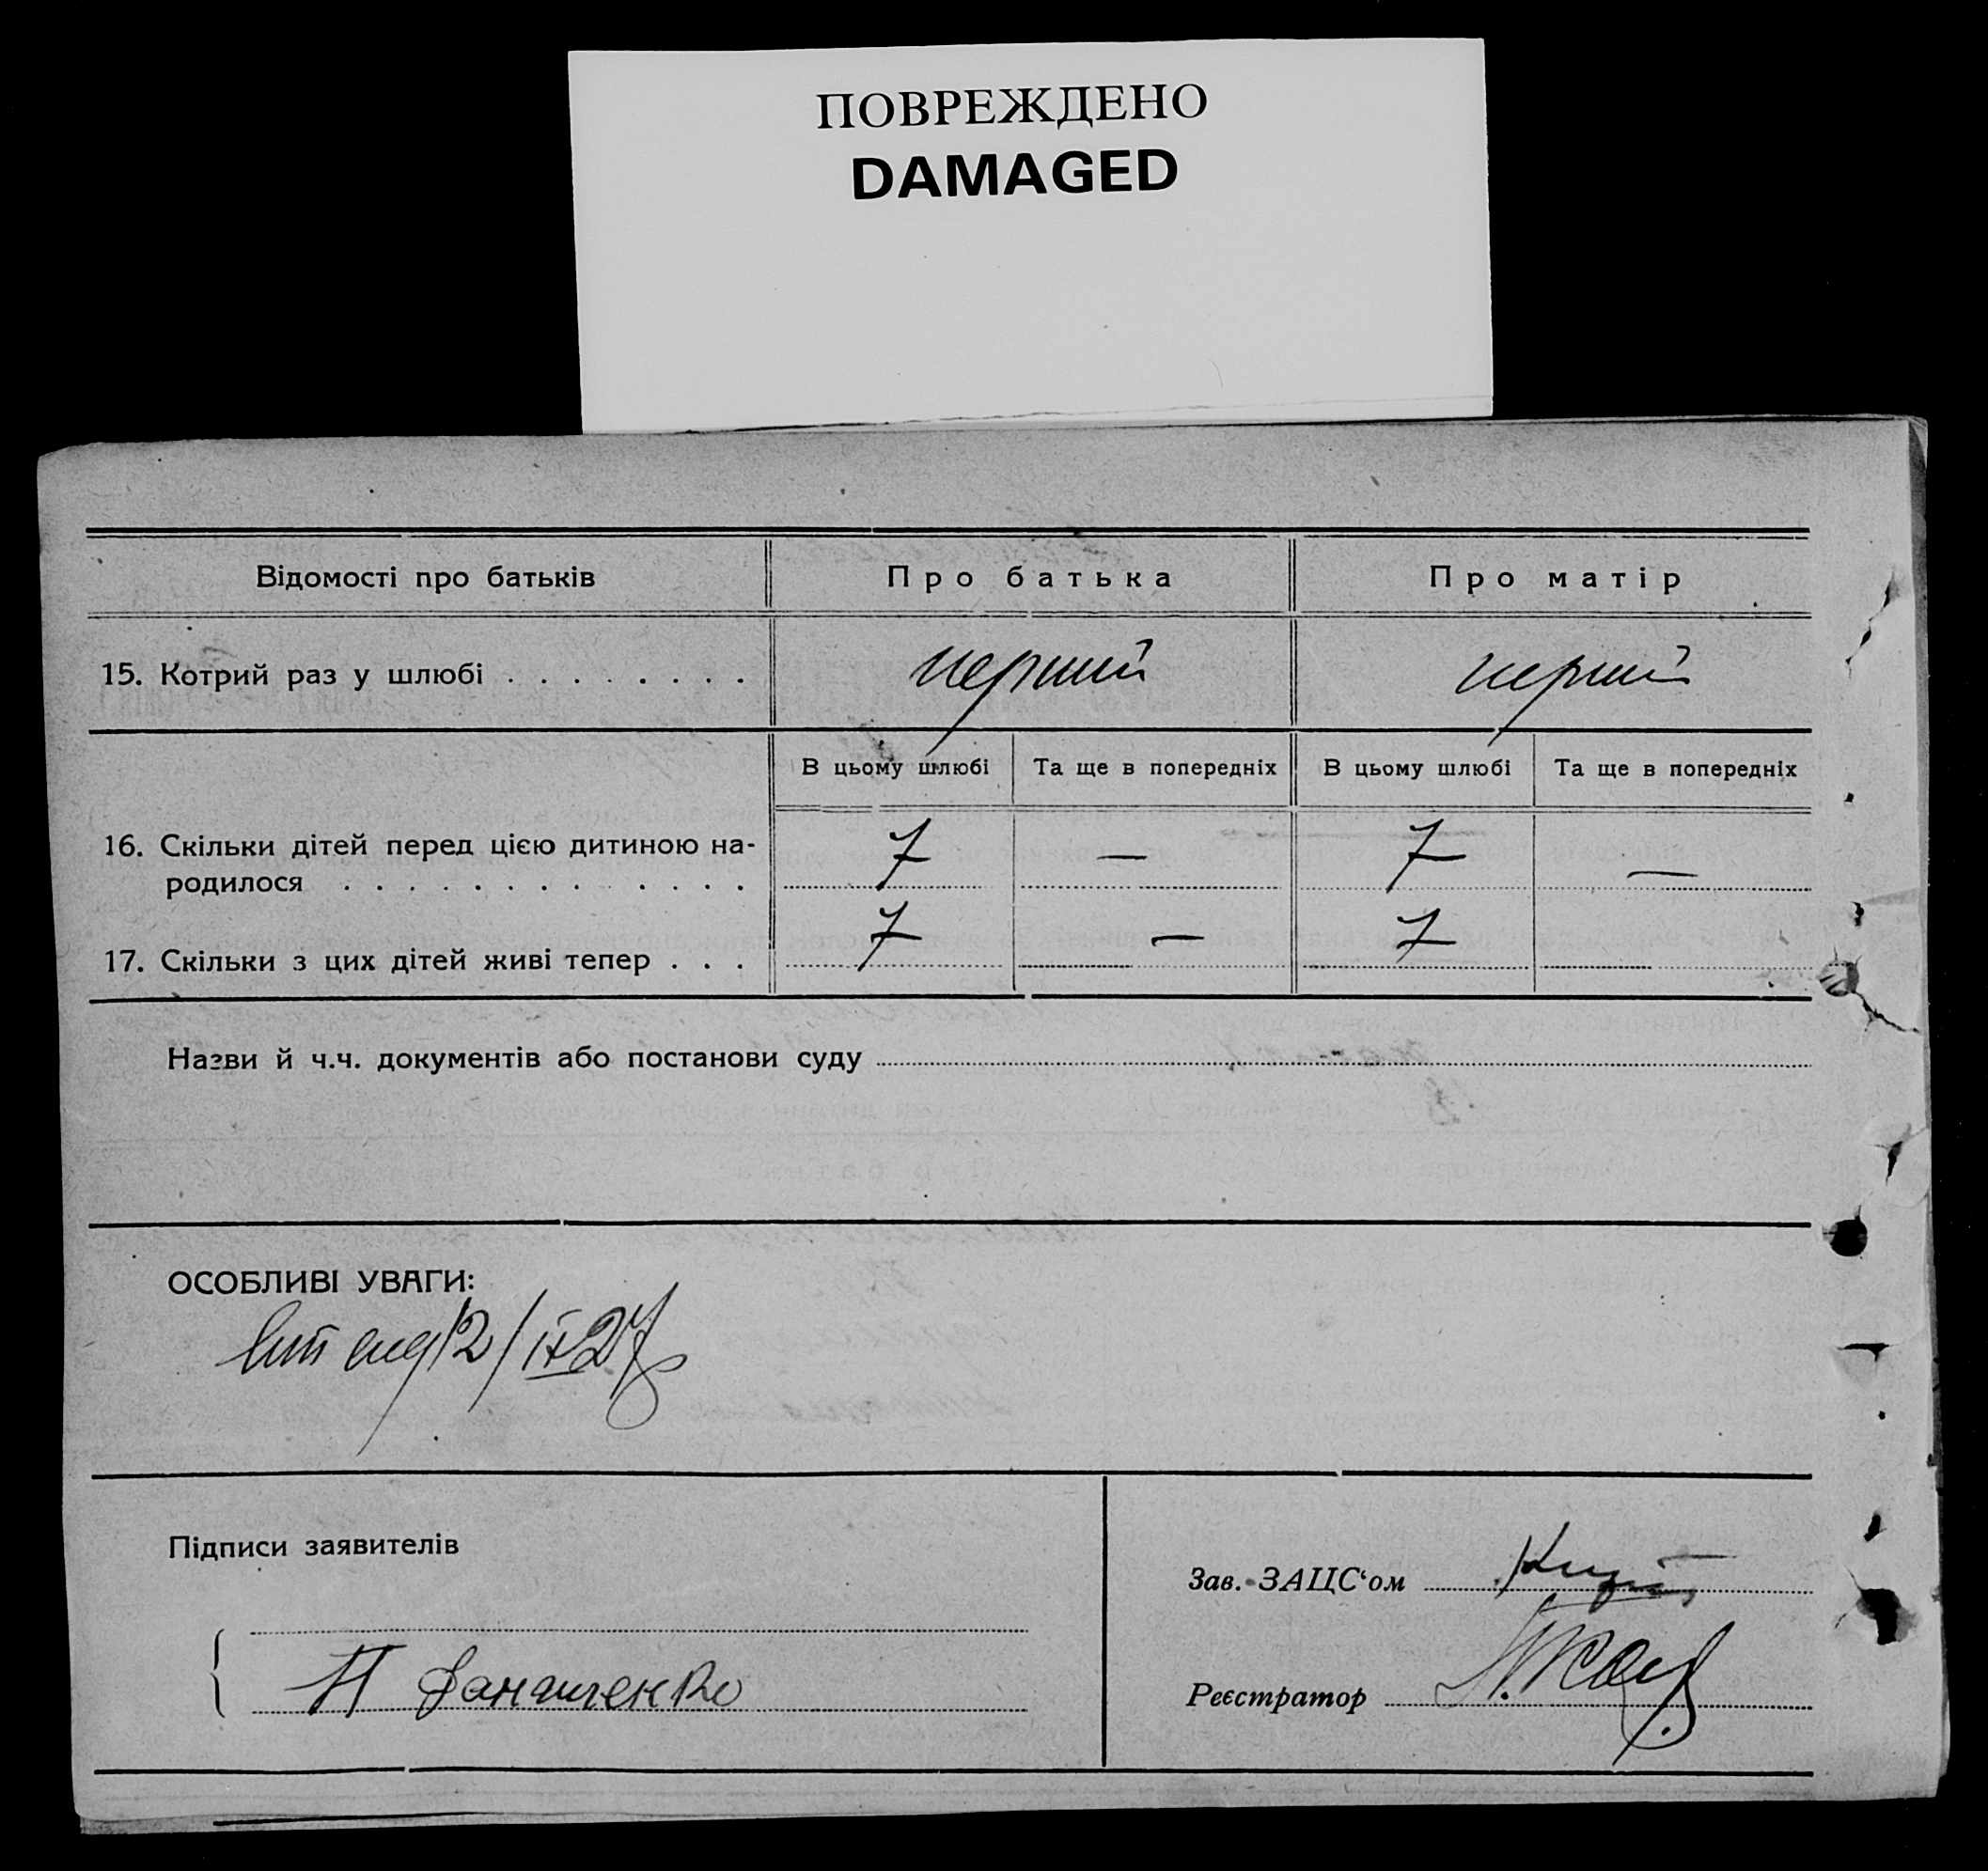 ПОВРЕЖДЕНО
DAMAGED
Відомості про батьків Про батька Про матір
15. Котрий раз у шлюбі . . . . . . . . перший перший
В цьому шлюбі Та ще в попередніх В цьому шлюбі Та ще в попередніх
16. Скільки дітей перед цією дитиною на-
родилося . . . . . . . . . . . . . 7 — 7 —
17. Скільки з цих дітей живі тепер . . . 7 — 7
Назви й ч.ч. документів або постанови суду
ОСОБЛИВІ УВАГИ:
12/IX 27
Підписи заявителів
Зав. ЗАЦС‘ом
Реєстратор